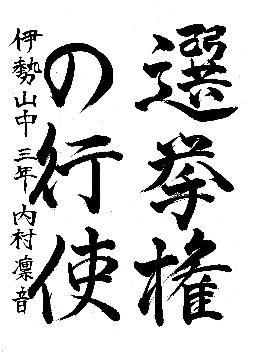 選挙権
の行使
伊勢山中三年 内村凜音